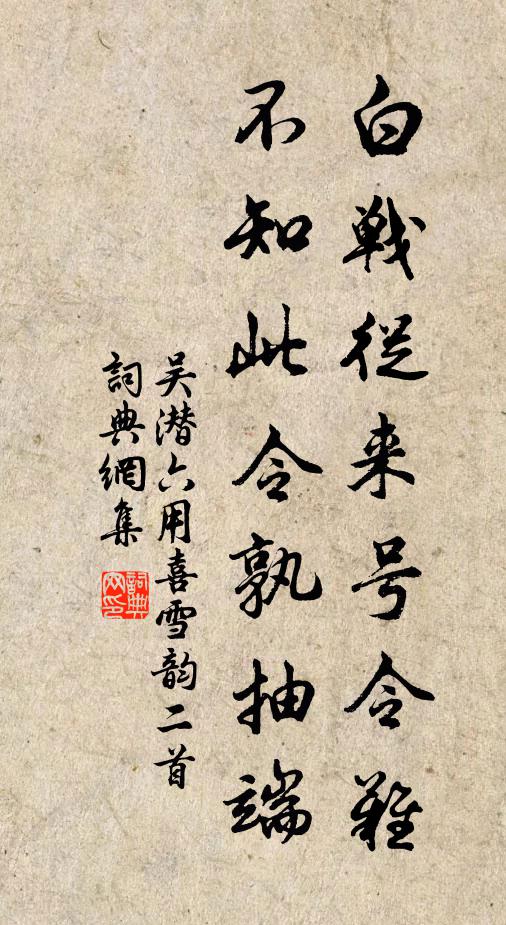 白戦従来号令難
不知此令孰抽端
吴潜六用喜雪韵二首
詞典網集
詞典網印